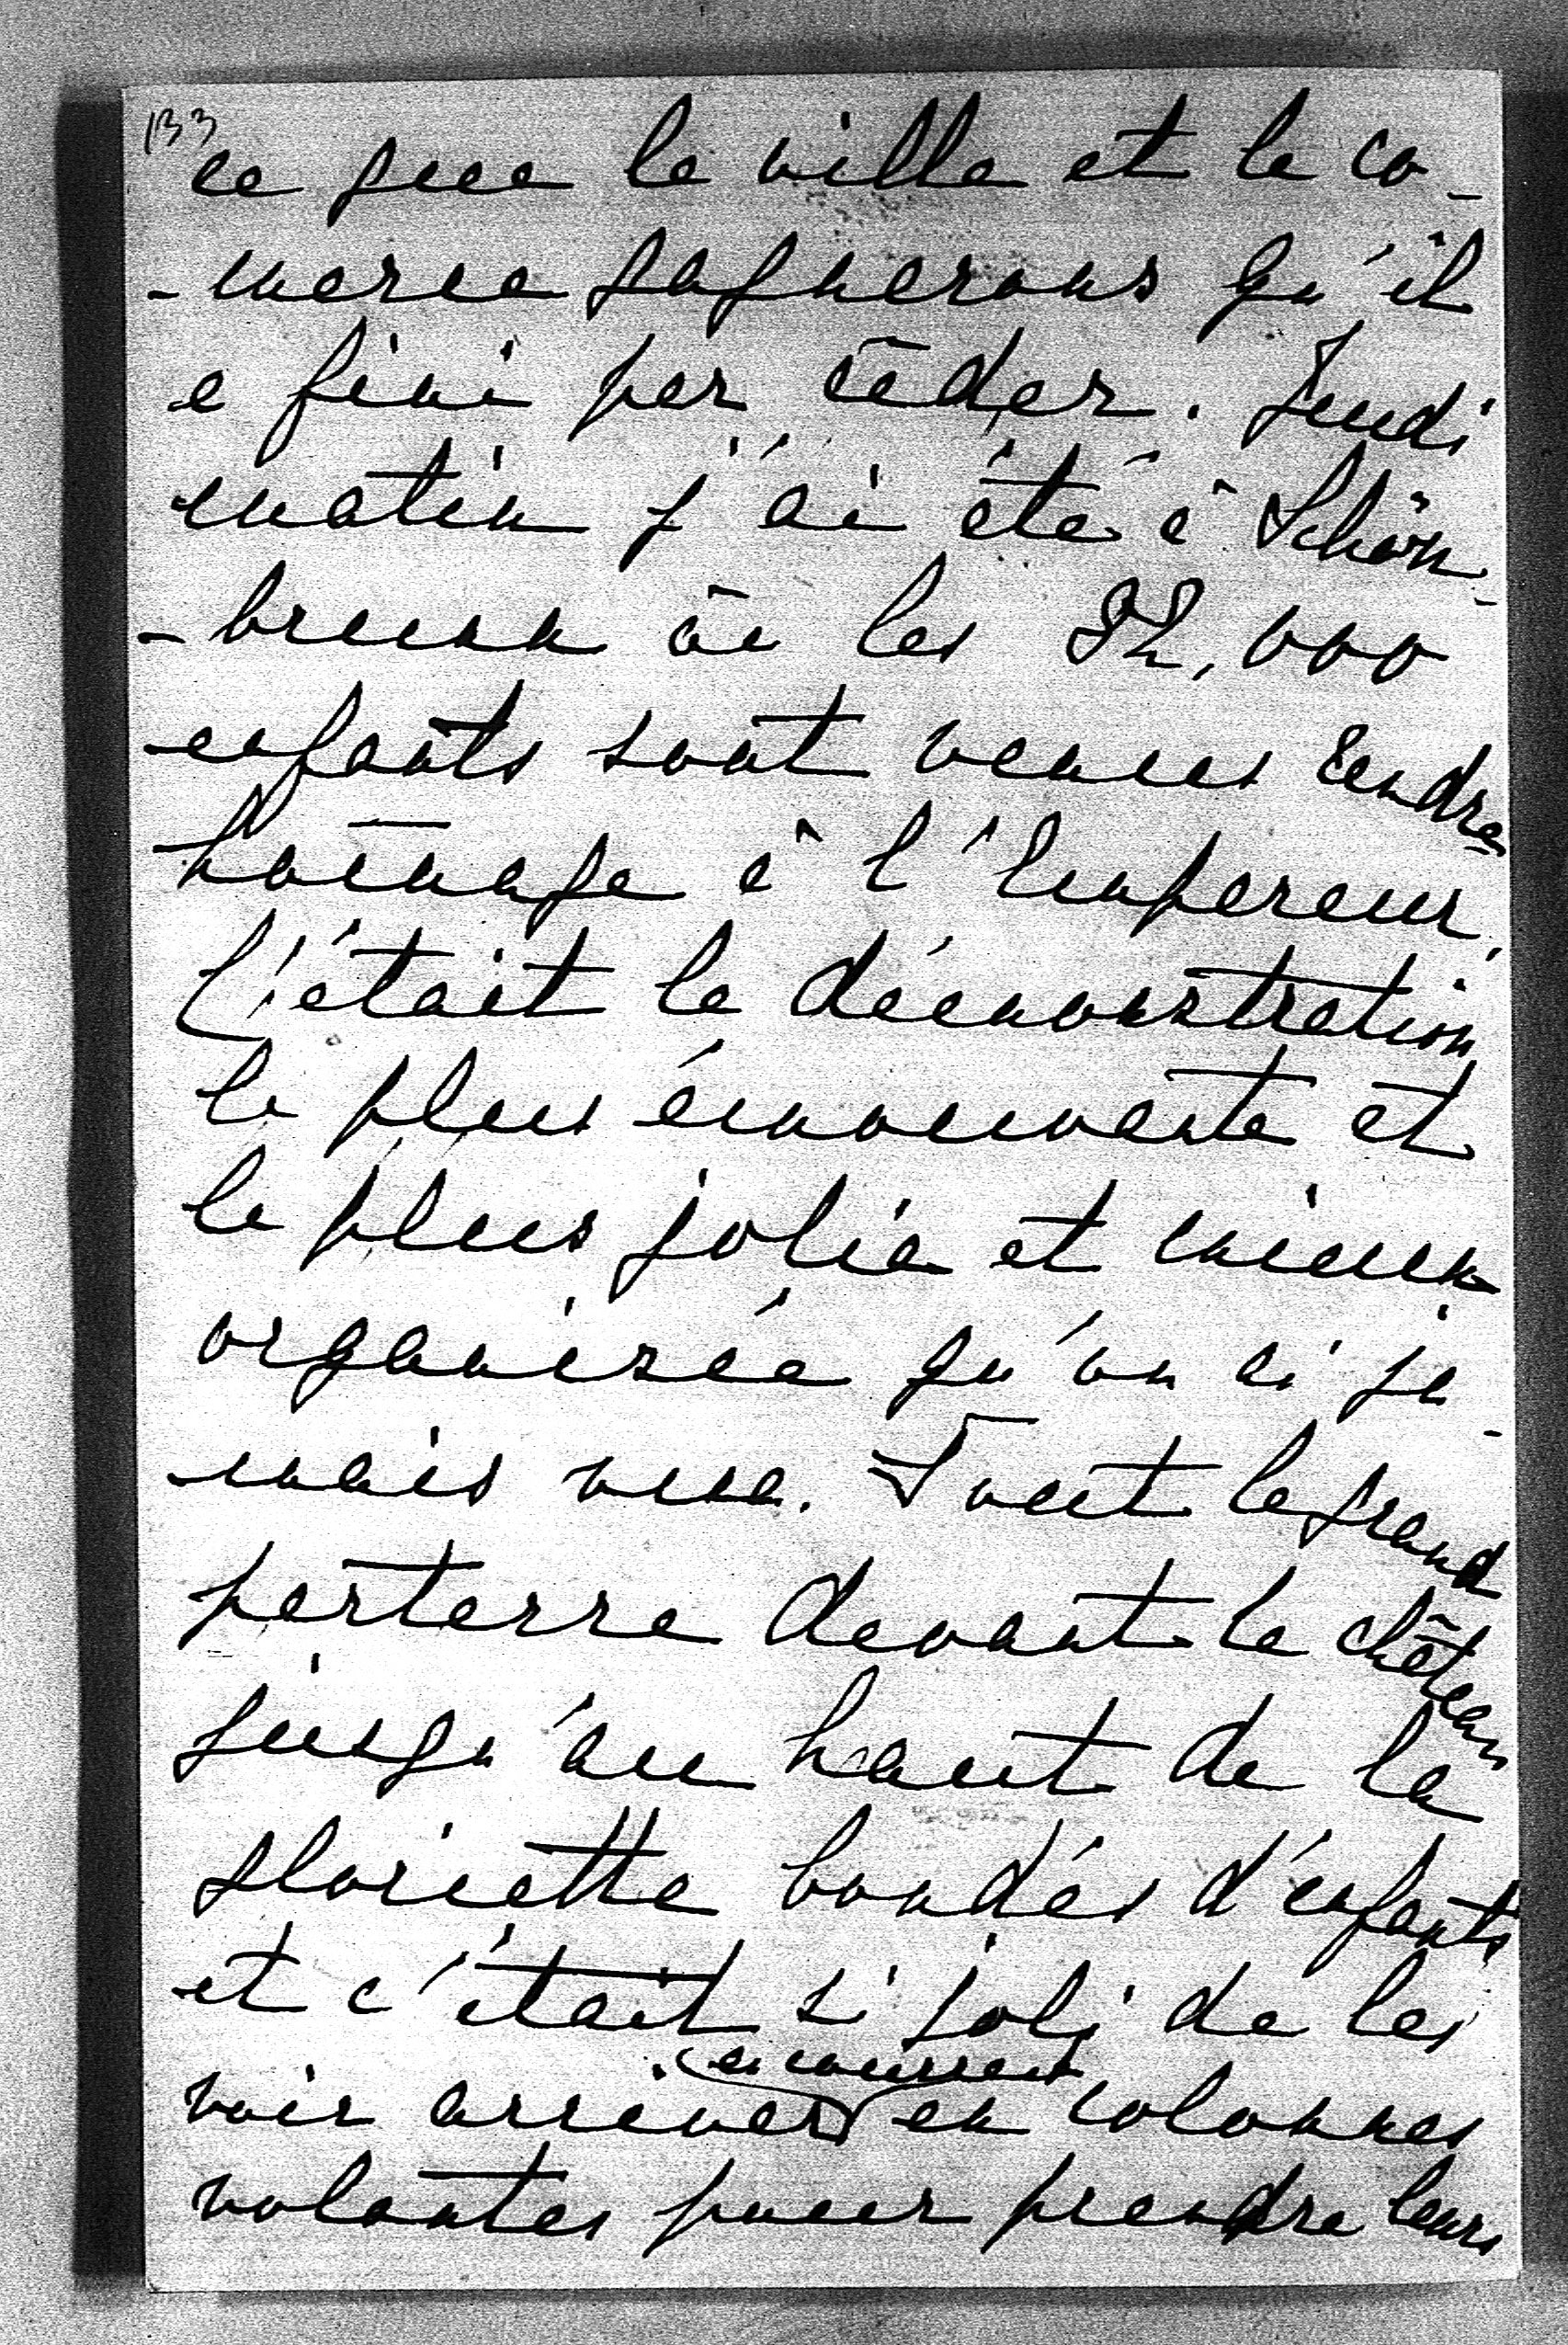 133
ce que la ville et le co-
-merce gagnerons qu'il
a fini par cēder. Lundi
matin j'ai été à Schön-
-brunn oū les 82,000
enfants sont venues rendre
hom̄age à l'Empereur.
C'était la démonstration
la plus émouvante et
la plus jolie et mieux
organisée qu'on ai ja-
mais vue. Tout le grand
parterre devant le château
jusqu'au haut de la
gloriette bondés d'enfants
et c'était si joli de les
(en courrent
voir arriver en colonnes
volantes pour prendre leurs